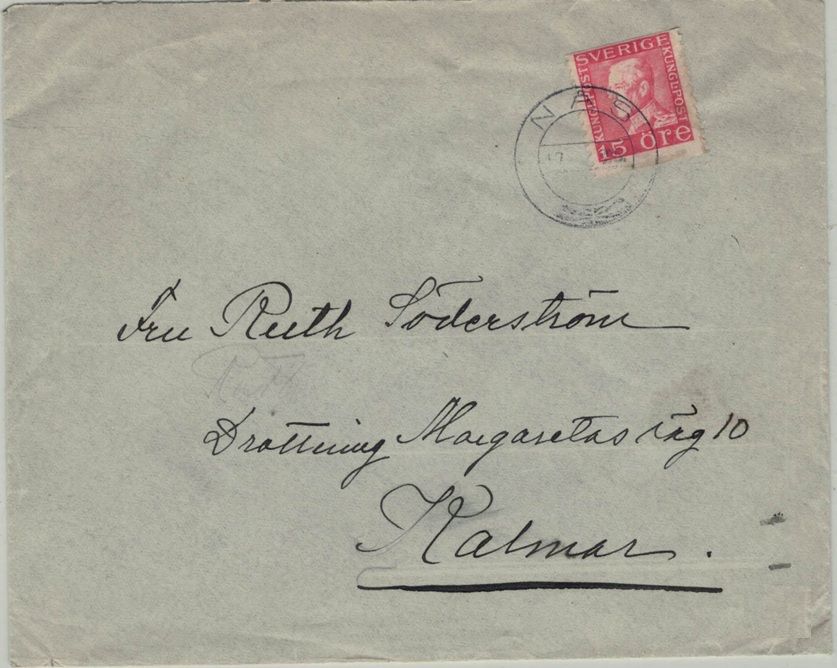 SVERIGE
KUNGL·POST
KUNGL·POST
15 öre
NÄS
Fru Ruth Söderström
Drottning Margaretas väg 10
Kalmar.